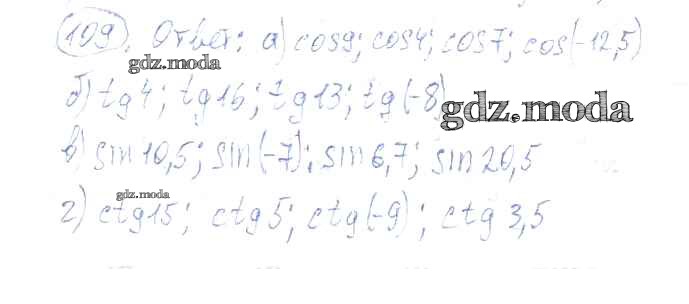 109. Ответ: а) cos9; cos4; cos7; cos(-12,5)
gdz.moda
б) tg4; tg16; tg13; tg(-8)
gdz.moda
в) sin10,5; sin(-7); sin6,7; sin20,5
gdz.moda
г) ctg15; ctg5; ctg(-9); ctg3,5